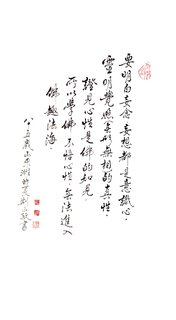 要明白妄念妄想都是意識心，
靈明覺照無形無相的真性，
證見心性是佛的知見，
所以學佛不悟心性無法進入
佛越法海
八十五歲山東湘
敬書